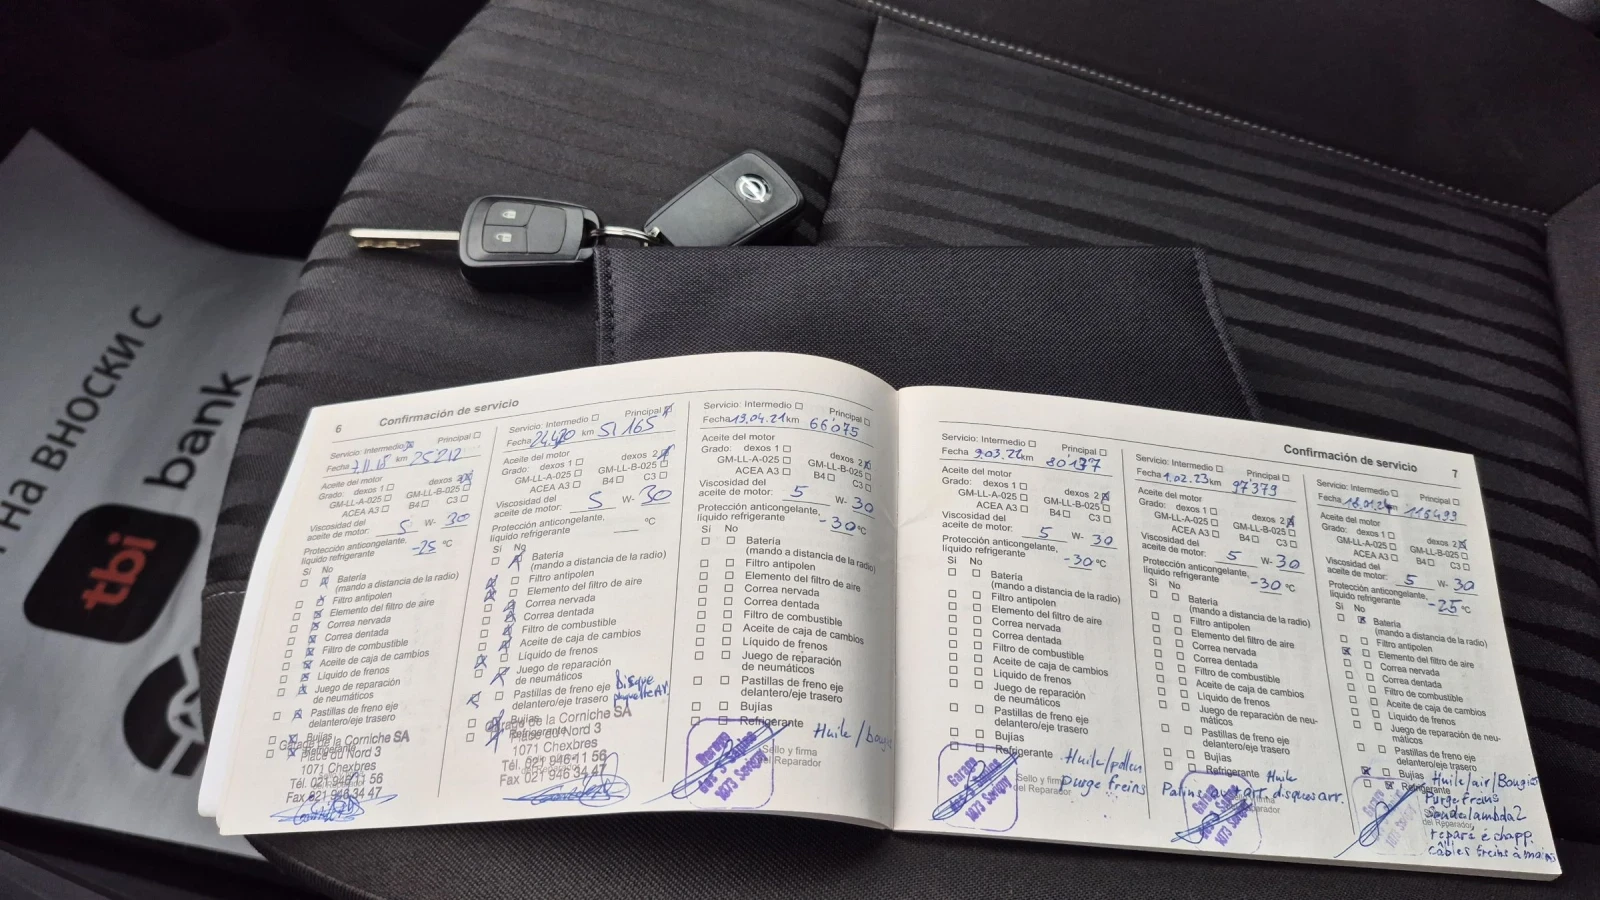 НА ВНОСКИ С
tbi
bank
6
Confirmación de servicio
Servicio: Intermedio
Principal
Fecha 7.11.18 km 25212
Aceite del motor
Grado: dexos 1
dexos 2
GM-LL-A-025
GM-LL-B-025
ACEA A3
B4
C3
Viscosidad del
aceite de motor: 5 W- 30
Protección anticongelante,
líquido refrigerante -25 °C
Si No
Batería
(mando a distancia de la radio)
Filtro antipolen
Elemento del filtro de aire
Correa nervada
Correa dentada
Filtro de combustible
Aceite de caja de cambios
Líquido de frenos
Juego de reparación
de neumáticos
Pastillas de freno eje
delantero/eje trasero
Bujías
Refrigerante
Garage de la Corniche SA
Place du Nord 3
1071 Chexbres
Tél. 021 946 11 56
Fax 021 946 34 47
Servicio: Intermedio
Principal
Fecha km 51165
Aceite del motor
Grado: dexos 1
dexos 2
GM-LL-A-025
GM-LL-B-025
ACEA A3
B4
C3
Viscosidad del
aceite de motor: 5 W- 30
Protección anticongelante,
líquido refrigerante °C
Si No
Batería
(mando a distancia de la radio)
Filtro antipolen
Elemento del filtro de aire
Correa nervada
Correa dentada
Filtro de combustible
Aceite de caja de cambios
Líquido de frenos
Juego de reparación
de neumáticos
Pastillas de freno eje
delantero/eje trasero
Disque
Bujías
Refrigerante
Garage de la Corniche SA
Place du Nord 3
1071 Chexbres
Tél. 021 946 11 56
Fax 021 946 34 47
Servicio: Intermedio
Principal
Fecha 19.04.21 km 66075
Aceite del motor
Grado: dexos 1
dexos 2
GM-LL-A-025
GM-LL-B-025
ACEA A3
B4
C3
Viscosidad del
aceite de motor: 5 W- 30
Protección anticongelante,
líquido refrigerante -30 °C
Si No
Batería
(mando a distancia de la radio)
Filtro antipolen
Elemento del filtro de aire
Correa nervada
Correa dentada
Filtro de combustible
Aceite de caja de cambios
Líquido de frenos
Juego de reparación
de neumáticos
Pastillas de freno eje
delantero/eje trasero
Bujías
Refrigerante
Huile/
Sello y firma
del Reparador
Garage
1073 Savigny
Confirmación de servicio
7
Servicio: Intermedio
Principal
Fecha 9.03. km 80137
Aceite del motor
Grado: dexos 1
dexos 2
GM-LL-A-025
GM-LL-B-025
ACEA A3
B4
C3
Viscosidad del
aceite de motor: 5 W- 30
Protección anticongelante,
líquido refrigerante -30 °C
Si No
Batería
(mando a distancia de la radio)
Filtro antipolen
Elemento del filtro de aire
Correa nervada
Correa dentada
Filtro de combustible
Aceite de caja de cambios
Líquido de frenos
Juego de reparación
de neumáticos
Pastillas de freno eje
delantero/eje trasero
Bujías
Refrigerante
Huile/pollen
purge freins
Sello y firma
del Reparador
Garage
1073 Savigny
Servicio: Intermedio
Principal
Fecha 1.02.23 km 97379
Aceite del motor
Grado: dexos 1
dexos 2
GM-LL-A-025
GM-LL-B-025
ACEA A3
B4
C3
Viscosidad del
aceite de motor: 5 W- 30
Protección anticongelante,
líquido refrigerante -30 °C
Si No
Batería
(mando a distancia de la radio)
Filtro antipolen
Elemento del filtro de aire
Correa nervada
Correa dentada
Filtro de combustible
Aceite de caja de cambios
Líquido de frenos
Juego de reparación de neu-
máticos
Pastillas de freno eje
delantero/eje trasero
Bujías
Refrigerante
Huile
arr. disques arr.
Garage
1073 Savigny
Servicio: Intermedio
Principal
Fecha 116493
Aceite del motor
Grado: dexos 1
dexos 2
GM-LL-A-025
GM-LL-B-025
ACEA A3
B4
C3
Viscosidad del
aceite de motor: 5 W- 30
Protección anticongelante,
líquido refrigerante -25 °C
Si No
Batería
(mando a distancia de la radio)
Filtro antipolen
Elemento del filtro de aire
Correa nervada
Correa dentada
Filtro de combustible
Aceite de caja de cambios
Líquido de frenos
Juego de reparación de neu-
máticos
Pastillas de freno eje
delantero/eje trasero
Bujías
Refrigerante
Huile/air/Bougies
Purge freins
Sonde lambda 2
del Reparador
réparé échapp.
câbles freins à mains